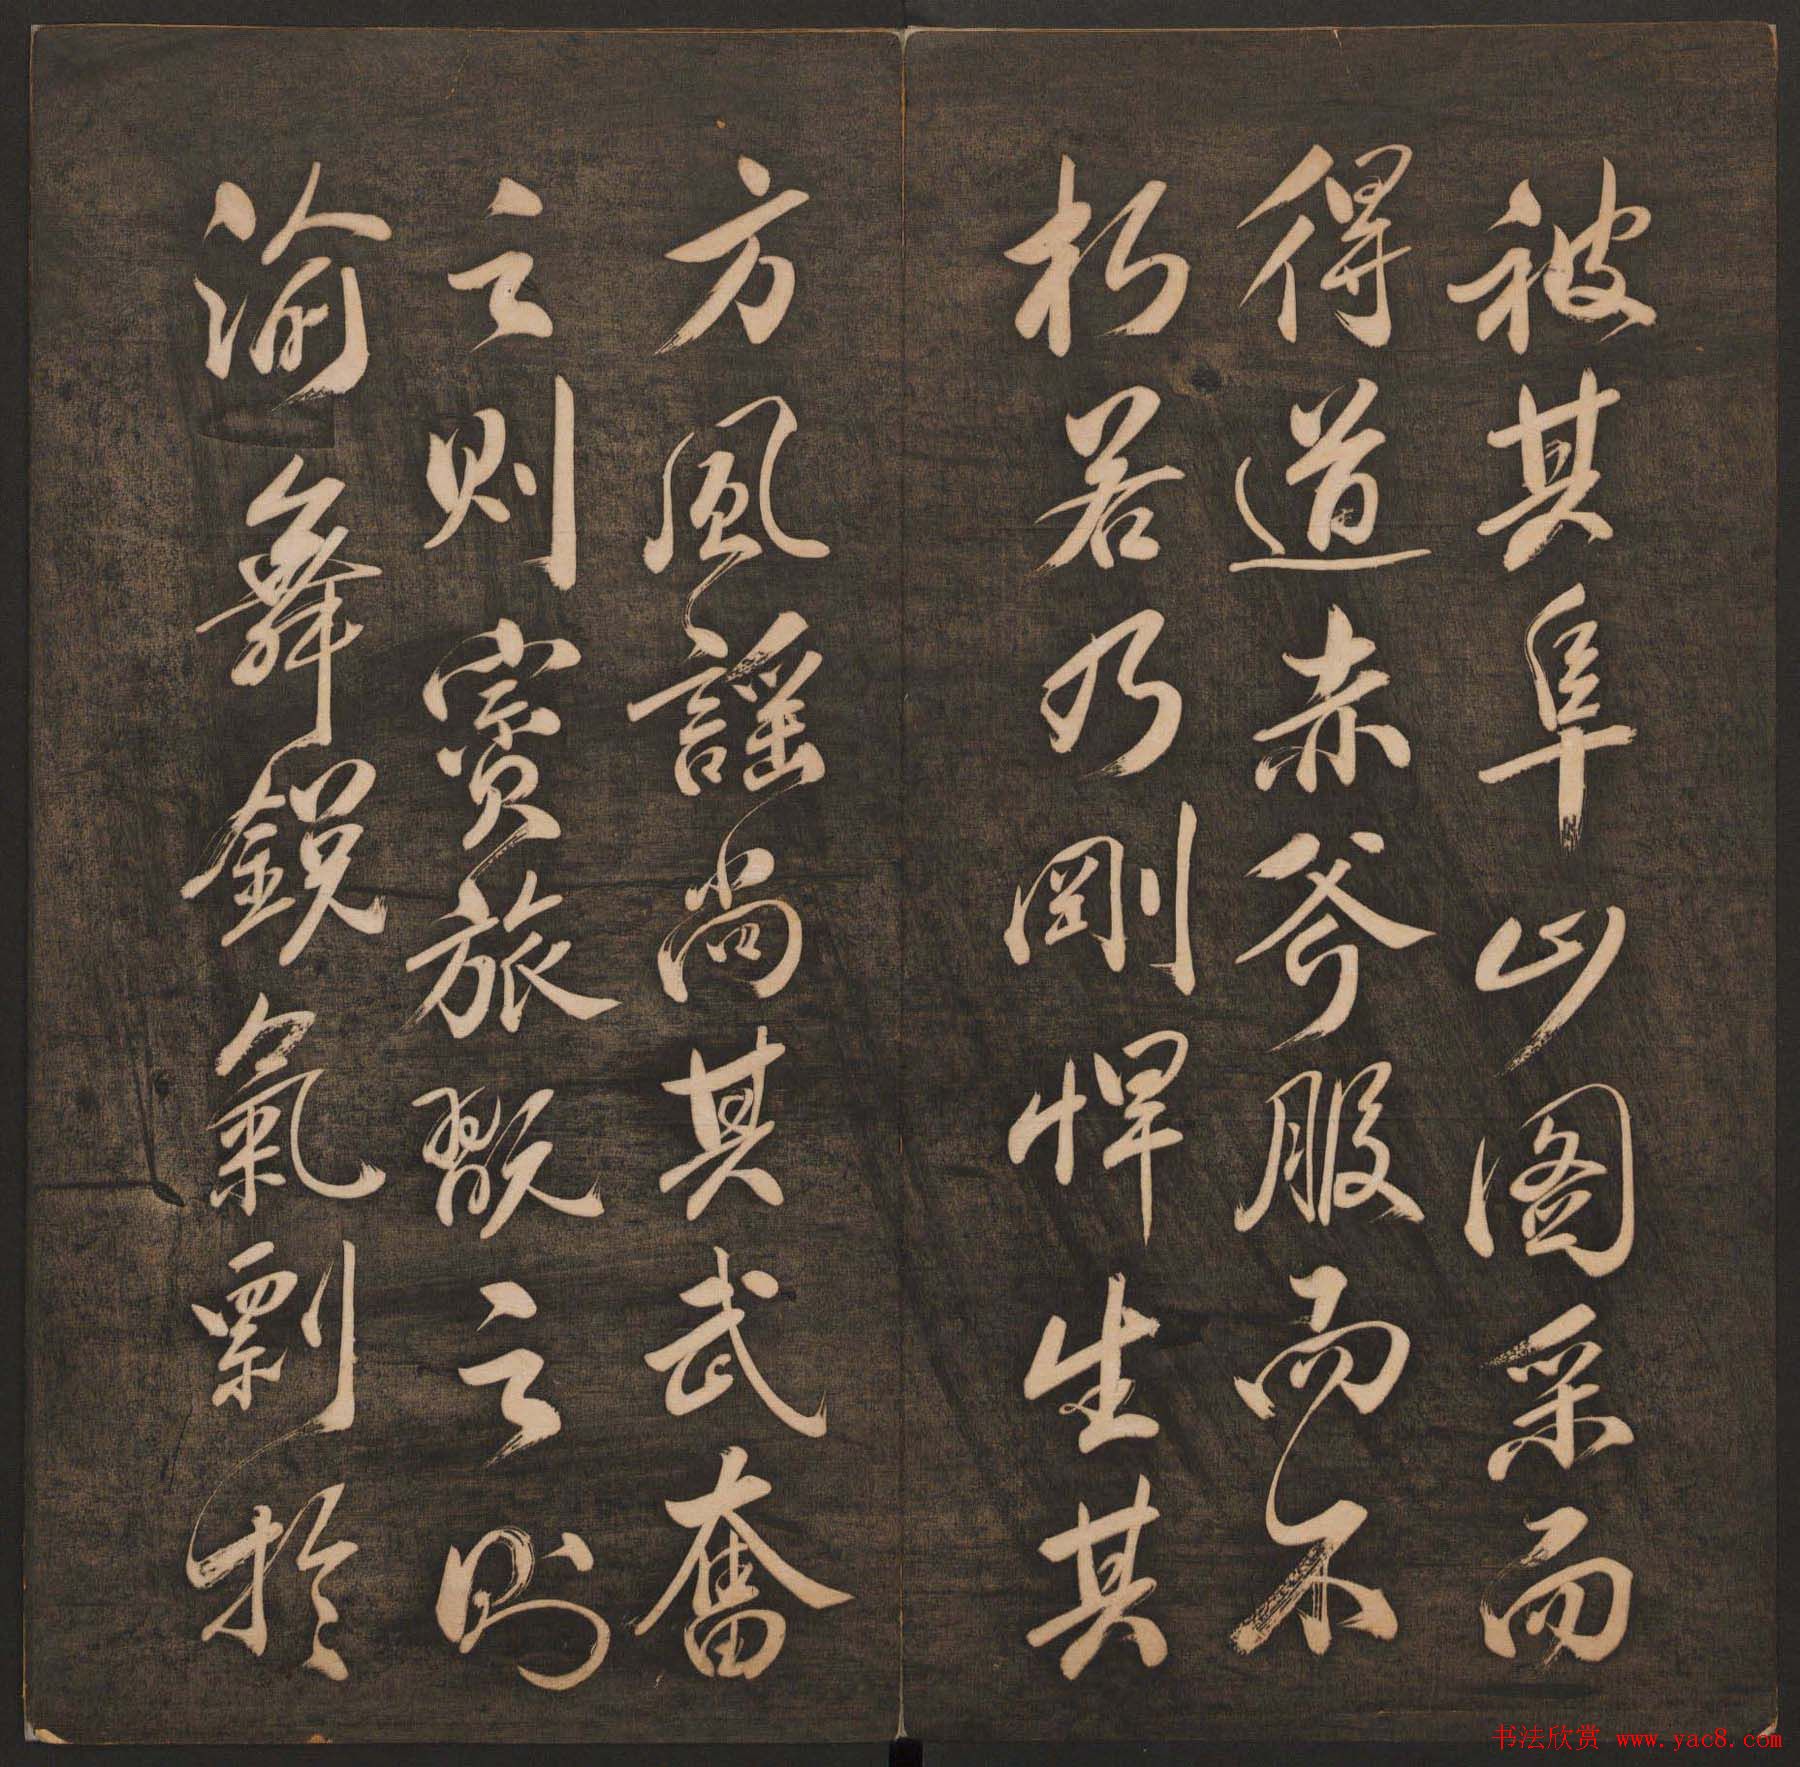 被其阜山圖采而
得道赤斧服而不
朽若乃剛悍生其
方風謠尚其武奮
之則賨旅翫之則
渝舞銳氣剽於
书法欣赏 www.yac8.com